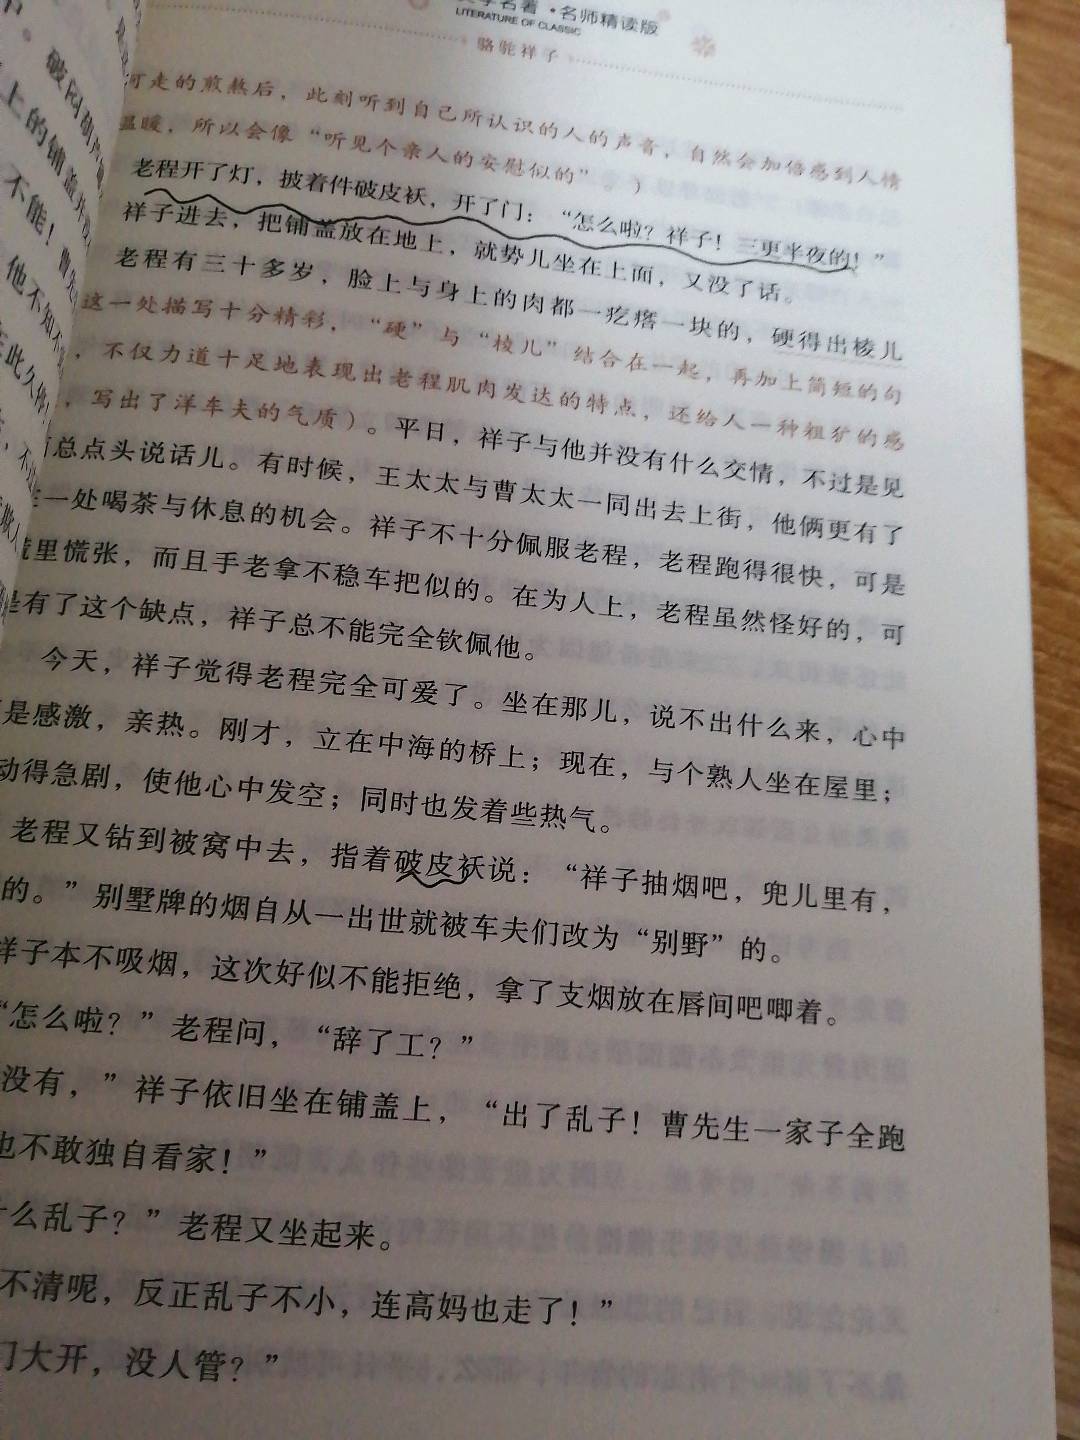 名著·名师精读版
LITERATURE OF CLASSIC
骆驼祥子
可走的煎熬后，此刻听到自己所认识的人的声音，自然会加倍感到人情
温暖，所以会像“听见个亲人的安慰似的”）
老程开了灯，披着件破皮袄，开了门：“怎么啦？祥子！三更半夜的！”
祥子进去，把铺盖放在地上，就势儿坐在上面，又没了话。
老程有三十多岁，脸上与身上的肉都一疙瘩一块的，硬得出棱儿
这一处描写十分精彩，“硬”与“棱儿”结合在一起，再加上简短的句
，不仅力道十足地表现出老程肌肉发达的特点，还给人一种粗犷的感
，写出了洋车夫的气质）。平日，祥子与他并没有什么交情，不过是见
总点头说话儿。有时候，王太太与曹太太一同出去上街，他俩更有了
一处喝茶与休息的机会。祥子不十分佩服老程，老程跑得很快，可是
里慌张，而且手老拿不稳车把似的。在为人上，老程虽然怪好的，可
是有了这个缺点，祥子总不能完全钦佩他。
今天，祥子觉得老程完全可爱了。坐在那儿，说不出什么来，心中
是感激，亲热。刚才，立在中海的桥上；现在，与个熟人坐在屋里；
动得急剧，使他心中发空；同时也发着些热气。
老程又钻到被窝中去，指着破皮袄说：“祥子抽烟吧，兜儿里有，
的。”别墅牌的烟自从一出世就被车夫们改为“别野”的。
祥子本不吸烟，这次好似不能拒绝，拿了支烟放在唇间吧唧着。
“怎么啦？”老程问，“辞了工？”
没有，”祥子依旧坐在铺盖上，“出了乱子！曹先生一家子全跑
也不敢独自看家！”
什么乱子？”老程又坐起来。
不清呢，反正乱子不小，连高妈也走了！”
门大开，没人管？”